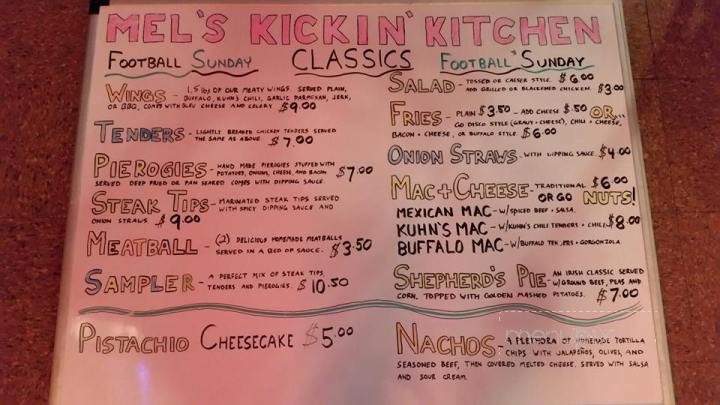 MEL'S KICKIN' KITCHEN
FOOTBALL SUNDAY CLASSICS FOOTBALL SUNDAY
WINGS - 1.5 lbs OF OUR MEATY WINGS. SERVED PLAIN,
BUFFALO, KUHN'S CHILI, GARLIC PARMESAN, JERK,
OR BBQ. COMES WITH BLEU CHEESE AND CELERY $9.00
TENDERS - LIGHTLY BREADED CHICKEN TENDERS SERVED
THE SAME AS ABOVE $7.00
PIEROGIES - HAND MADE PIEROGIES STUFFED WITH
POTATOES, ONIONS, CHEESE, AND BACON $7.00
SERVED DEEP FRIED OR PAN SEARED COMES WITH DIPPING SAUCE.
STEAK TIPS - MARINATED STEAK TIPS SERVED
WITH SPICY DIPPING SAUCE AND
ONION STRAWS. $9.00
MEATBALL - (2) DELICIOUS HOMEMADE MEATBALLS
SERVED IN A BED OF SAUCE. $3.50
SAMPLER - A PERFECT MIX OF STEAK TIPS,
TENDERS AND PIEROGIES. $10.50
PISTACHIO CHEESECAKE $5.00
SALAD - TOSSED OR CAESER STYLE. $6.00
ADD GRILLED OR BLACKENED CHICKEN $3.00
FRIES - PLAIN $3.50 - ADD CHEESE $.50 OR...
GO DISCO STYLE (GRAVY + CHEESE), CHILI + CHEESE,
BACON + CHEESE, OR BUFFALO STYLE $6.00
ONION STRAWS - WITH DIPPING SAUCE $4.00
MAC + CHEESE - TRADITIONAL $6.00
OR GO NUTS!
MEXICAN MAC - W/SPICED BEEF + SALSA.
KUHN'S MAC - W/KUHN'S CHILI TENDERS + CHILI $8.00
BUFFALO MAC - W/BUFFALO + GORGONZOLA
SHEPHERD'S PIE - AN IRISH CLASSIC SERVED
W/GROUND BEEF, PEAS AND
CORN, TOPPED WITH GOLDEN MASHED POTATOES. $7.00
NACHOS - A PLETHORA OF HOMEMADE TORTILLA
CHIPS WITH JALAPEÑOS, OLIVES, AND
SEASONED BEEF, THEN COVERED MELTED CHEESE. SERVED WITH SALSA
AND SOUR CREAM.